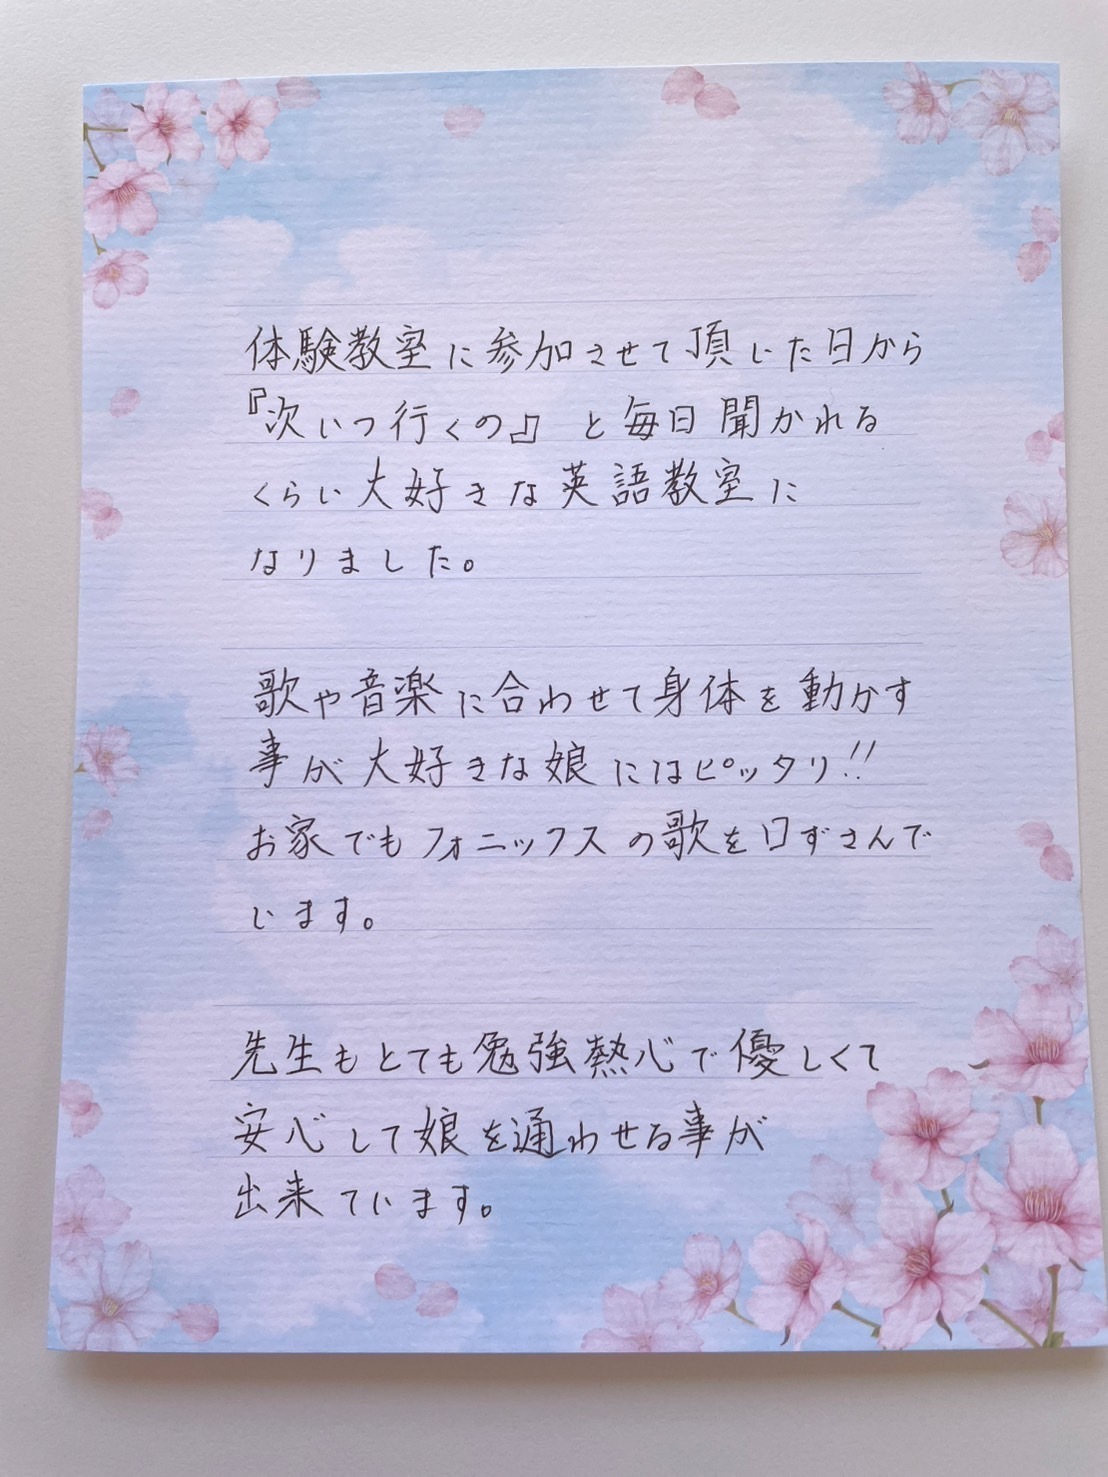 体験教室に参加させて頂いた日から
『次いつ行くの』と毎日聞かれる
くらい大好きな英語教室に
なりました。
歌や音楽に合わせて身体を動かす
事が大好きな娘にはピッタリ!!
お家でもフォニックスの歌を口ずさんで
います。
先生もとても勉強熱心で優しくて
安心して娘を通わせる事が
出来ています。